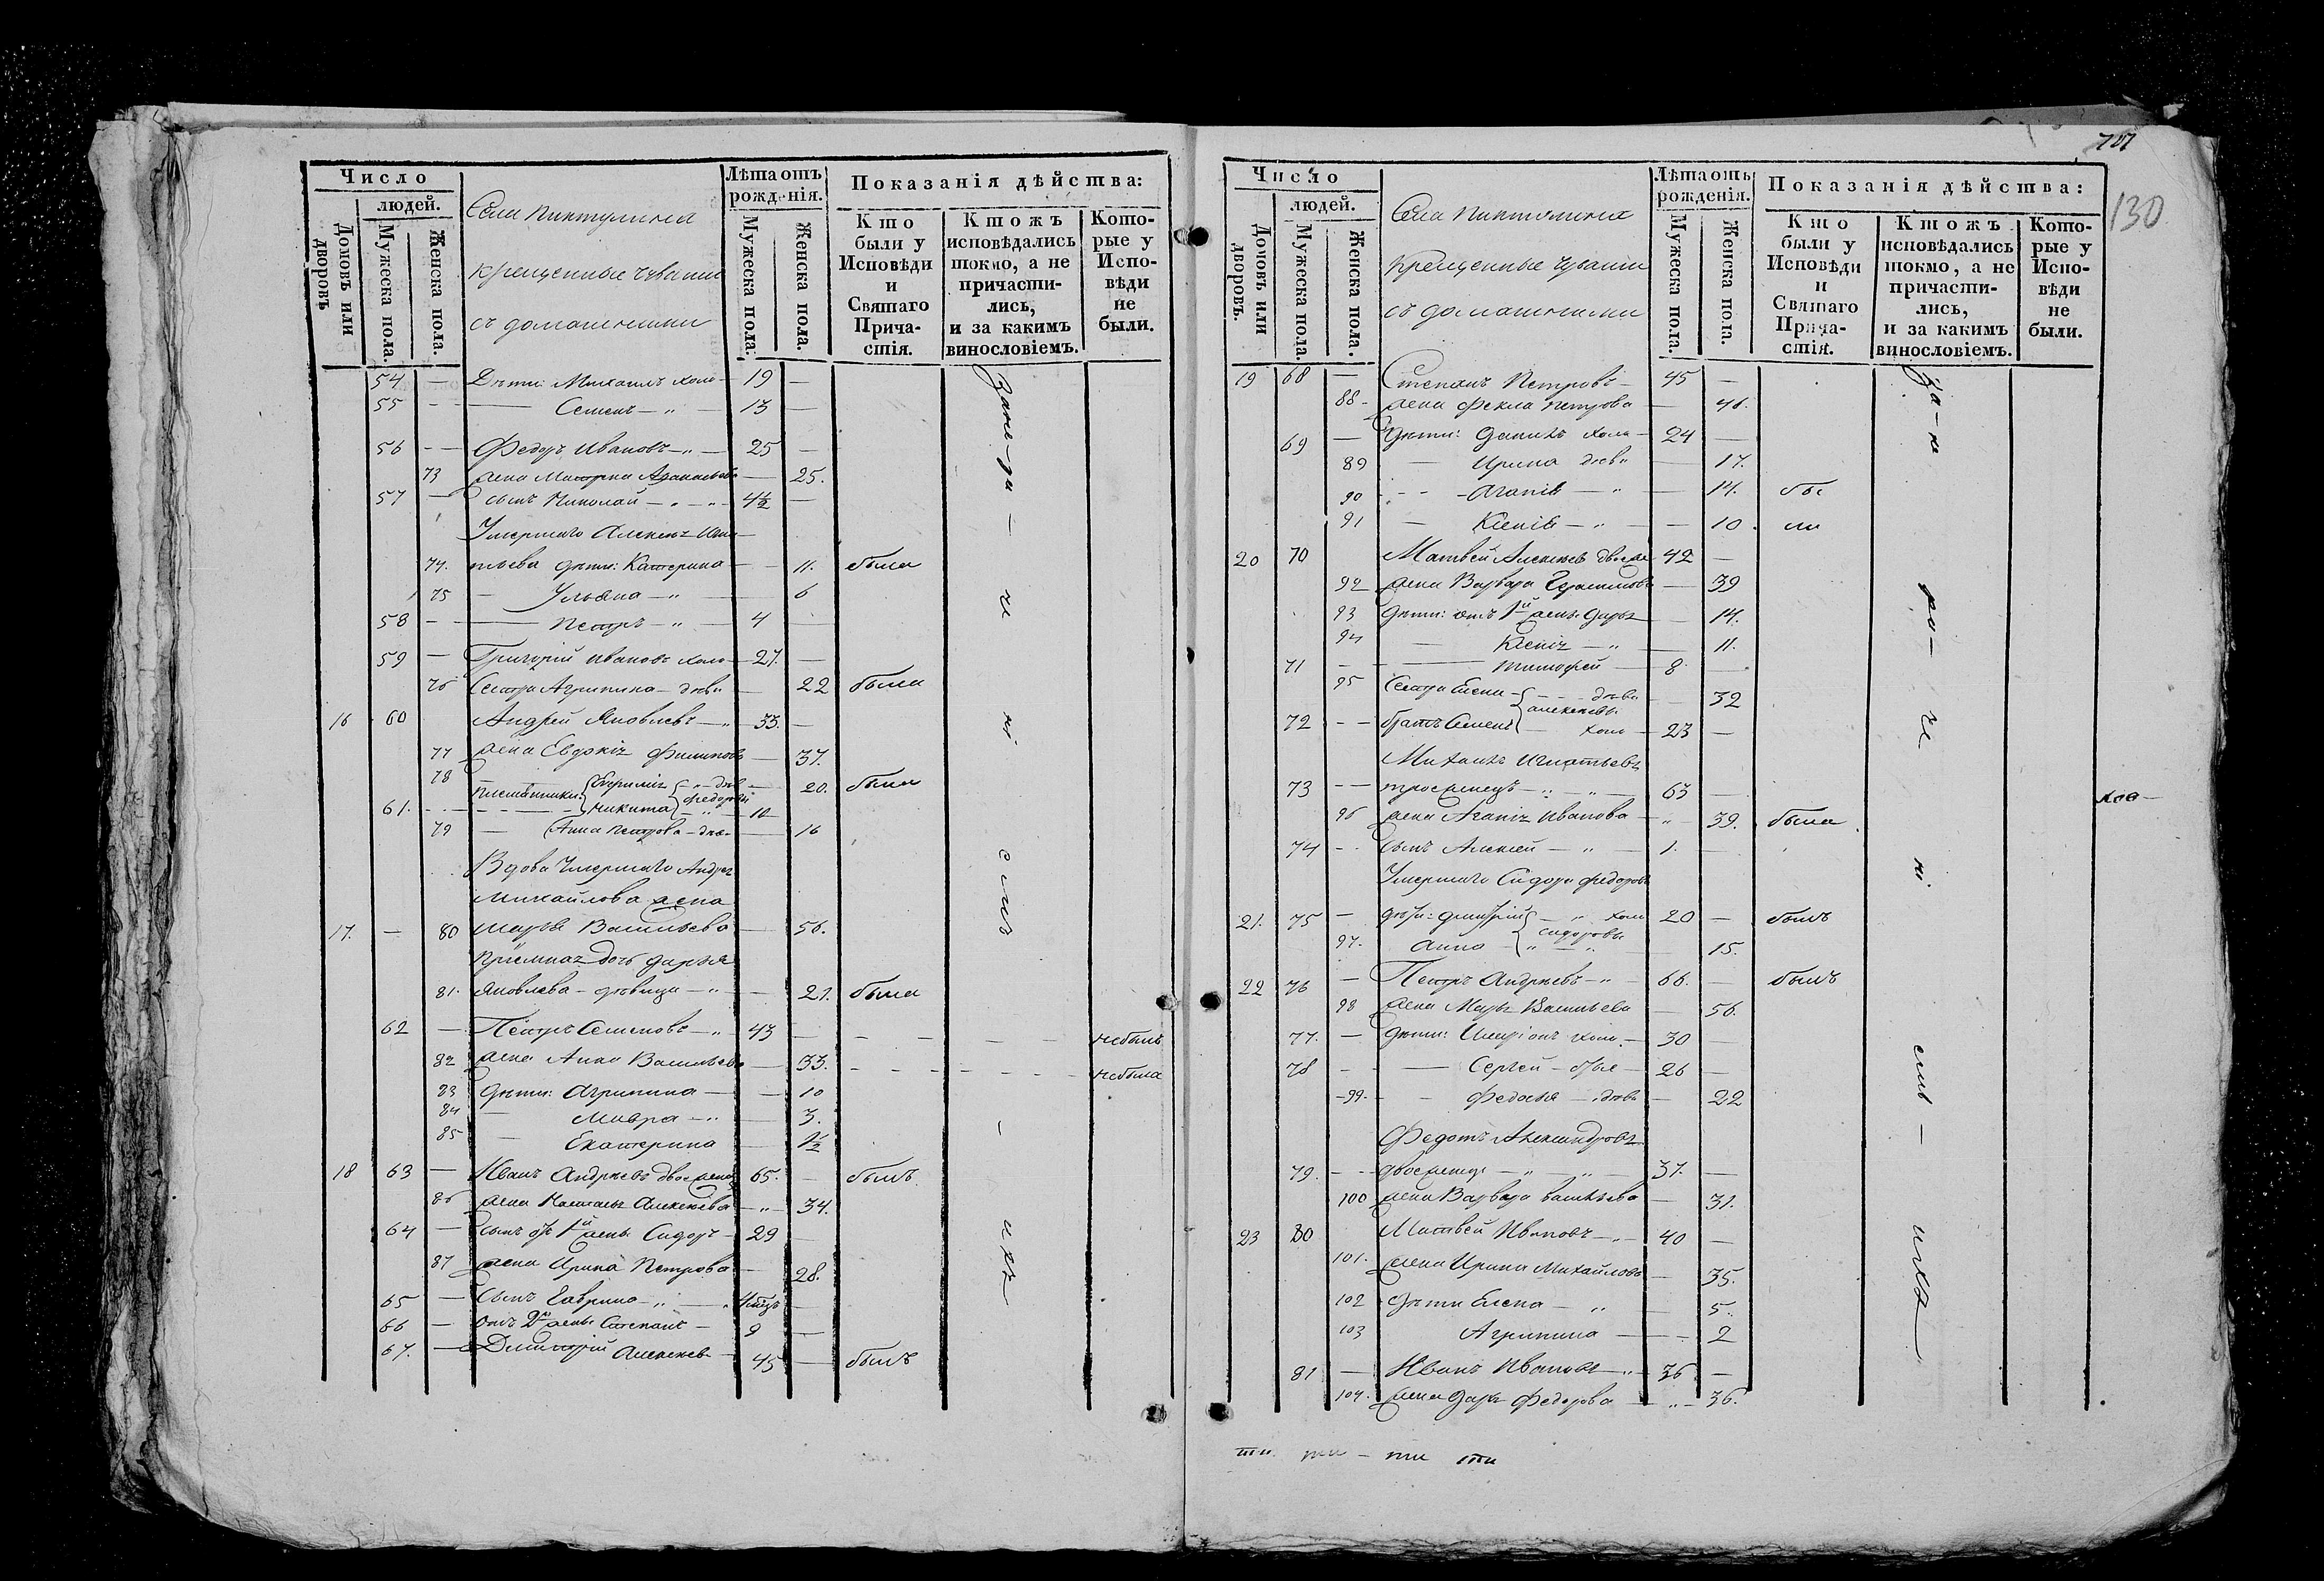 Число
людей.
Домовъ или дворовъ
Мужеска пола.
Женска пола.
Села Пинтулина
крещенные чуваши
съ домашними
Лѣта отъ рожденія.
Мужеска пола.
Женска пола.
Показанія дѣйства:
Кто были у Исповѣди и Святаго Причастія.
Ктожъ исповѣдались токмо, а не причастились, и за какимъ винословіемъ.
Которые у Исповѣди не были.
54 — Дѣти: Михаилъ холо- 19 —
55 — — Семенъ — „ — 13 —
56 — — Федоръ Ивановъ — „ — 25 —
73 жена Матрена — 25.
57 — сынъ Николай — „ — „ — 4½ —
Умершаго
74. дѣти: Катерина — — 11. была
75 — Ульяна — „ — 6
58 — — Петръ — „ — 4 —
59 — Григорій Ивановъ холо- 27. —
76 Сестра Агрипина — дѣв. — 22 была
16 60 Андрей Яковлевъ — „ 33. —
77 жена Евдокія Филипова — 37.
78 племянники: — „ — дѣв — 20. была
61. — — — Никита Федоровы — „ — 10 —
79 — Анна Петрова — дѣв. — 16
Вдова Умершаго Андрея
Михайлова жена
17. — 80 Марья Васильева — 56.
Пріемная дочь Дарья
81. Яковлева — дѣвица — „ — 21. была
62 — Петръ Семеновъ — „ 43 — небылъ
82 жена Анна Васильева — 33. небыла
83 дѣти: Агрипина — — 10
84 — Мавра — „ — 3.
85 — Екатерина — 1½
18 63 — Иванъ Андреевъ двоежен. 65. — былъ
86 жена Настасья Алексеева — „ — 34.
64 — сынъ отъ 1й жены Сидоръ — 29 —
87 жена Ирина Петрова — 28.
65 — сынъ Гаврила — „ —
66 — отъ 2й жены Степанъ — 9 —
67. — Димитрій Алексеев — 45 — былъ
707
130
Число
людей.
Домовъ или дворовъ.
Мужеска пола.
Женска пола.
Села Пинтулина
крещенные чуваши
съ домашними
Лѣта отъ рожденія.
Мужеска пола.
Женска пола.
Показанія дѣйства:
Кто были у Исповѣди и Святаго Причастія.
Ктожъ исповѣдались токмо, а не причастились, и за какимъ винословіемъ.
Которые у Исповѣди не были.
19 68 — Степанъ Петровъ — 45 —
88 — жена Фекла Петрова — 46.
69 — дѣти: Данилъ холо — 24 —
89 — Ирина дѣв. — 17.
90 — — — — „ — 14. бы
91 — Ксенія — „ — — 10. ли
20 70 Матвей Алексеев двоеже 42 —
92 жена Варвара Герасимов — 39
93 дѣти: отъ 1й жены Дарья — 14.
94 — Ксенія — „ — 11.
71 — — — Тимофей — 8 —
95 Сестра Елена — — дѣва — 32
Алексеевы
72 — — братъ Семенъ — холо — 23 —
Михаилъ Игнатьевъ
73 — — троеженецъ — „ — „ — 63 —
96 жена Агапія Иванова — „ — 39. была
74 — сынъ Алексей — „ — 1. —
Умершаго Сидора Федоров
21. 75 — дѣти: Дмитрій — „ холо 20 — былъ
Сидоровы
97. Анна — „ — „ 15.
22 76 — Петръ Андреевъ — „ — 66. — былъ
98 жена Марья Васильева — 56.
77. — дѣти: Иларіонъ холо. — 30 —
78 — — Сергей — — 26 —
99 — — Федосья — дѣв. — 22
Федотъ Александровъ
79. — — двоеженецъ — „ — „ — 37. —
100 жена Варвара Васильева — 31.
23 80 Матвей Ивановъ — „ — 40 —
101. жена Ирина Михайлова — 35.
102 дѣти Елена — „ — 5.
103 Агрипина — — 2
81 — Иванъ Ивановъ — „ — 36 —
104. жена Дарья Федорова — „ — 36.
ти ти — ти ти